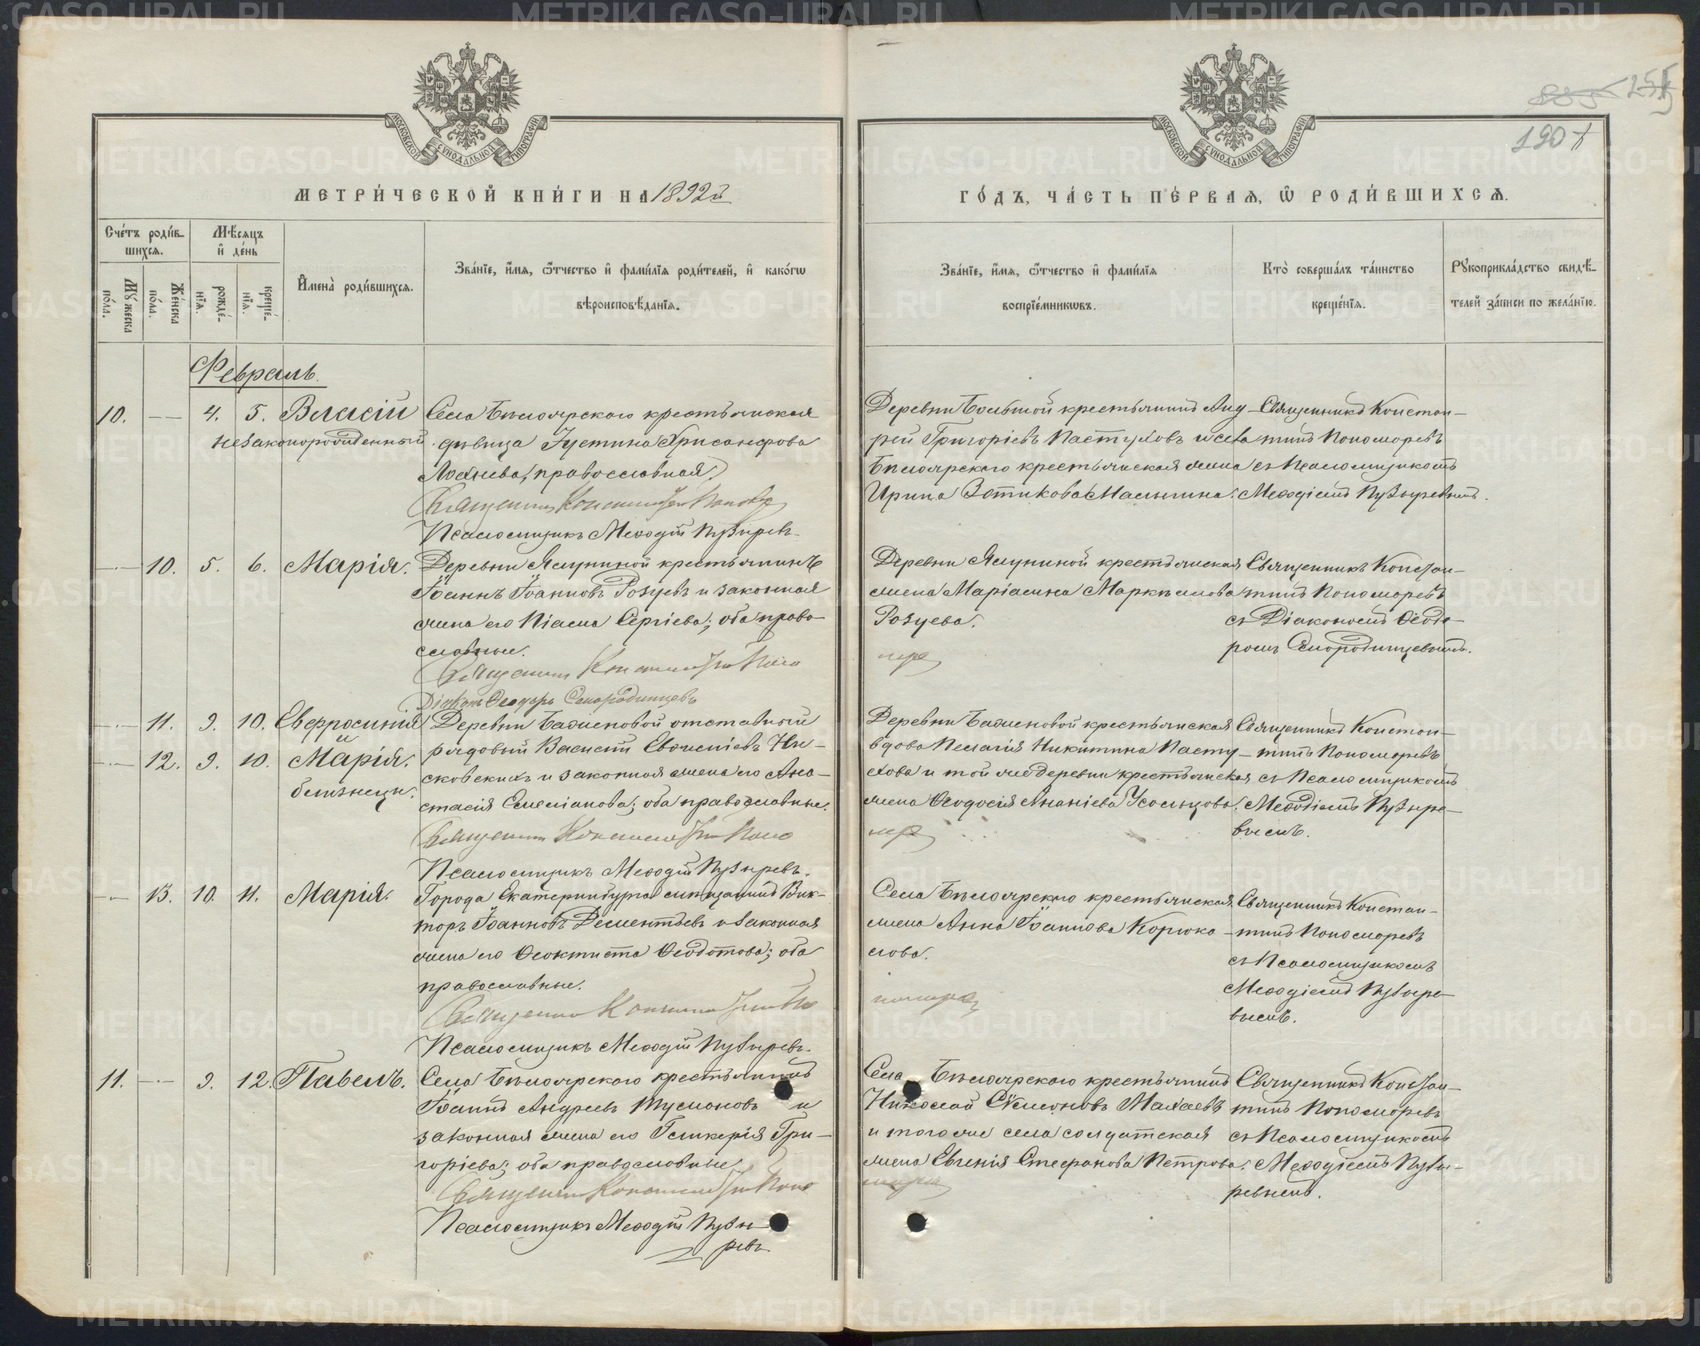 255
190 †
МОСКОВСКОЙ СѴНОДАЛЬНОЙ ТИПОГРАФІИ
МЕТРИ́ЧЕСКОЙ КНИ́ГИ НА 1892й
ГО́ДЪ, ЧА́СТЬ ПЕ́РВАЯ, Ѿ РОДИ́ВШИХСЯ.
Сче́тъ роди́в-
шихся.
Му́жеска по́ла.
Же́нска по́ла.
Мѣ́сяцъ и҆ де́нь
рожде́-
нїя.
креще́-
нїя.
И҆мена̀ роди́вшихся.
Зва́нїе, и҆́мя, ѻ҆́тчество и҆ фами́лїя роди́телей, и҆ како́гѡ
вѣроисповѣ́данїя.
Зва́нїе, и҆́мя, ѻ҆́тчество и҆ фами́лїя
воспрїе́мникѡвъ.
Кто̀ соверша́лъ та́инство
креще́нїя.
Рꙋкоприкла́дство свидѣ́-
телей за́писи по жела́нїю.
Февраль.
10. — 4. 5. Власій
незаконорожденный.
Села Бѣлоярскаго крестьянская
дѣвица Іустина Хрисанфова
православная.
Священникъ Константинъ Пономаревъ
Псаломщикъ Меѳодій Пузыревъ.
Деревни Большой крестьянинъ Анд-
рей Григоріевъ Пастуховъ и села
Бѣлоярскаго крестьянская жена
Ирина Зотикова Малыгина.
Священникъ Констан-
тинъ Пономаревъ
съ Псаломщикомъ
Меѳодіемъ Пузыревымъ.
— 10. 5. 6. Марія.
Деревни Ялуниной крестьянинъ
Іоаннъ Іоанновъ Розуевъ и законная
жена его Піама Сергіева; оба право-
славные.
Священникъ Константинъ Поно
Діаконъ Ѳеодоръ Скородинцевъ
Деревни Ялуниной крестьянская
жена Маріамна Маркелова
Розуева.
Священникъ Констан-
тинъ Пономаревъ
съ Діакономъ Ѳеодо-
ромъ Скородинцевымъ.
— 11. 9. 10. Евфросинія
и
— 12. 9. 10. Марія.
близнецы.
Деревни Баженовой отставной
рядовый Василій Евгеніевъ Ни-
сковскихъ и законная жена его Ана-
стасія Емеліанова; оба православные.
Священникъ Константинъ Поно
Псаломщикъ Меѳодій Пузыревъ.
Деревни Баженовой крестьянская
вдова Пелагія Никитина Пасту-
хова и той же деревни крестьянская
жена Ѳеодосія Ананіева Усольцова.
Священникъ Констан-
тинъ Пономаревъ
съ Псаломщикомъ
Меѳодіемъ Пузыре-
вымъ.
— 13. 10. 11. Марія.
Города Екатеринбурга мѣщанинъ Вик-
торъ Іоанновъ Дементьевъ и законная
жена его Ѳеоктиста Ѳеодотова; оба
православные.
Священникъ Константинъ По
Псаломщикъ Меѳодій Пузыревъ.
Села Бѣлоярскаго крестьянская
жена Анна Іоаннова Корюка-
лова.
Священникъ Констан-
тинъ Пономаревъ
съ Псаломщикомъ
Меѳодіемъ Пузыре-
вымъ.
11. — 9. 12. Павелъ.
Села Бѣлоярскаго крестьянинъ
Іоаннъ Андреевъ Тусмановъ и
законная жена его Гликерія Гри-
горіева; оба православные.
Священникъ Константинъ Поно
Псаломщикъ Меѳодій Пузы-
ревъ
Села Бѣлоярскаго крестьянинъ
Николай Сѵмеоновъ Малаевъ
и того же села солдатская
жена Евгенія Стефанова Петрова.
Священникъ Констан-
тинъ Пономаревъ
съ Псаломщикомъ
Меѳодіемъ Пузы-
ревымъ.
METRIKI.GASO-URAL.RU